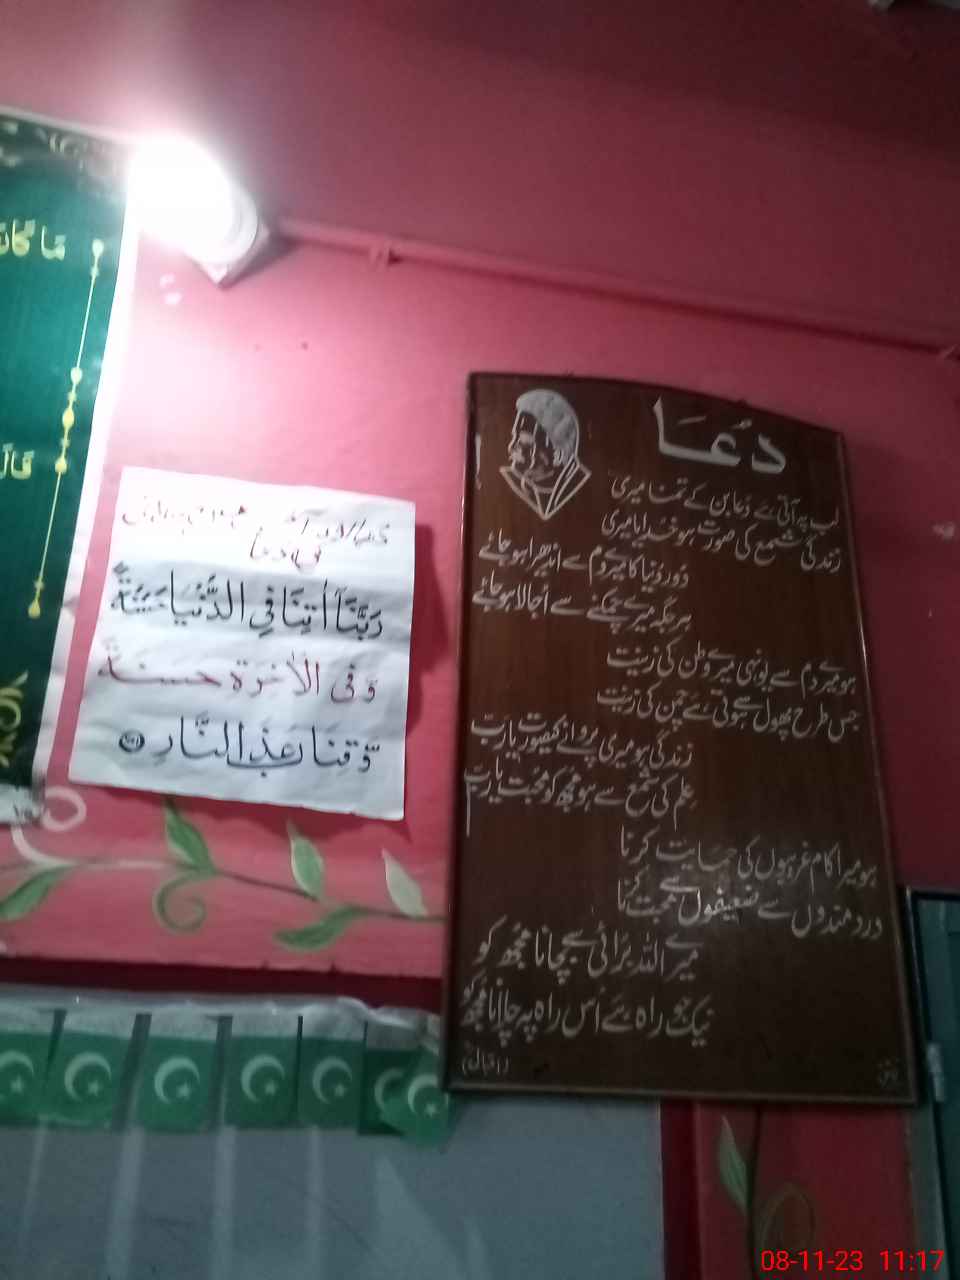 دُعَا
لب پہ آتی ہے دُعا بن کے تمنا میری
زندگی شمع کی صورت ہو خدایا میری
دُور دُنیا کا میرے دم سے اندھیرا ہو جائے
ہر جگہ میرے چمکنے سے اُجالا ہو جائے
ہو میرے دم سے یونہی میرے وطن کی زینت
جس طرح پھول سے ہوتی ہے چمن کی زینت
زندگی ہو میری پروانے کی صورت یارب
عِلم کی شمع سے ہو مجھ کو محبت یارب
ہو میرا کام غریبوں کی حمایت کرنا
درد مندوں سے ضعیفوں سے محبت کرنا
میرے اللہ بُرائی سے بچانا مجھ کو
نیک جو راہ ہے اُس راہ پہ چلانا مجھ کو
(اقبال)
رَبَّنَآ اٰتِنَا فِي الدُّنْيَا حَسَنَةً
وَّفِى الْاٰخِرَةِ حَسَنَةً
وَّقِنَا عَذَابَ النَّارِ
مَا كَانَ
قَالَ
08-11-23 11:17